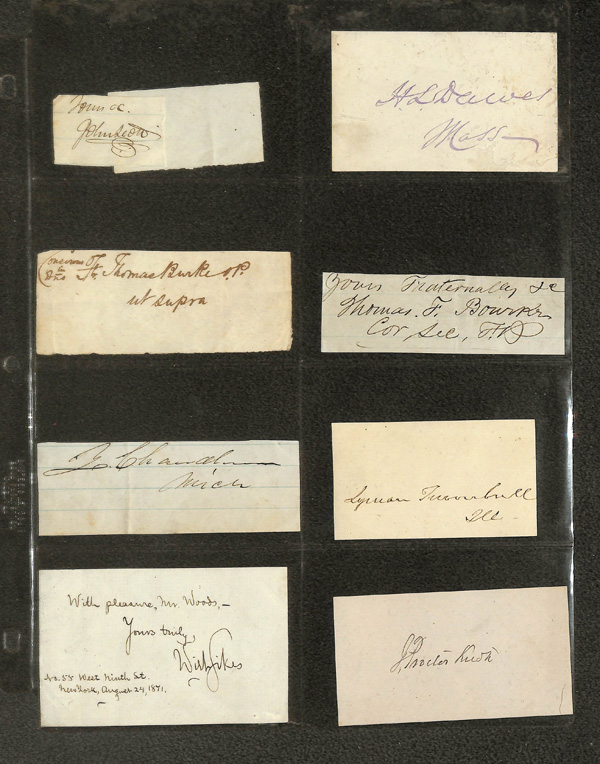 Yours &c.
H L Dawes
Mass
Fr. Thomas Burke O.P.
ut supra
Yours Fraternally &c
Thomas. F. Bourke
Cor Sec, F.B
Z. Chandler
Mich
Lyman Trumbull
Ill
With pleasure, Mr. Woods,—
Yours truly,
Wirt Sikes
No. 55 West Ninth St.
New York, August 24, 1871.
J Proctor Knott